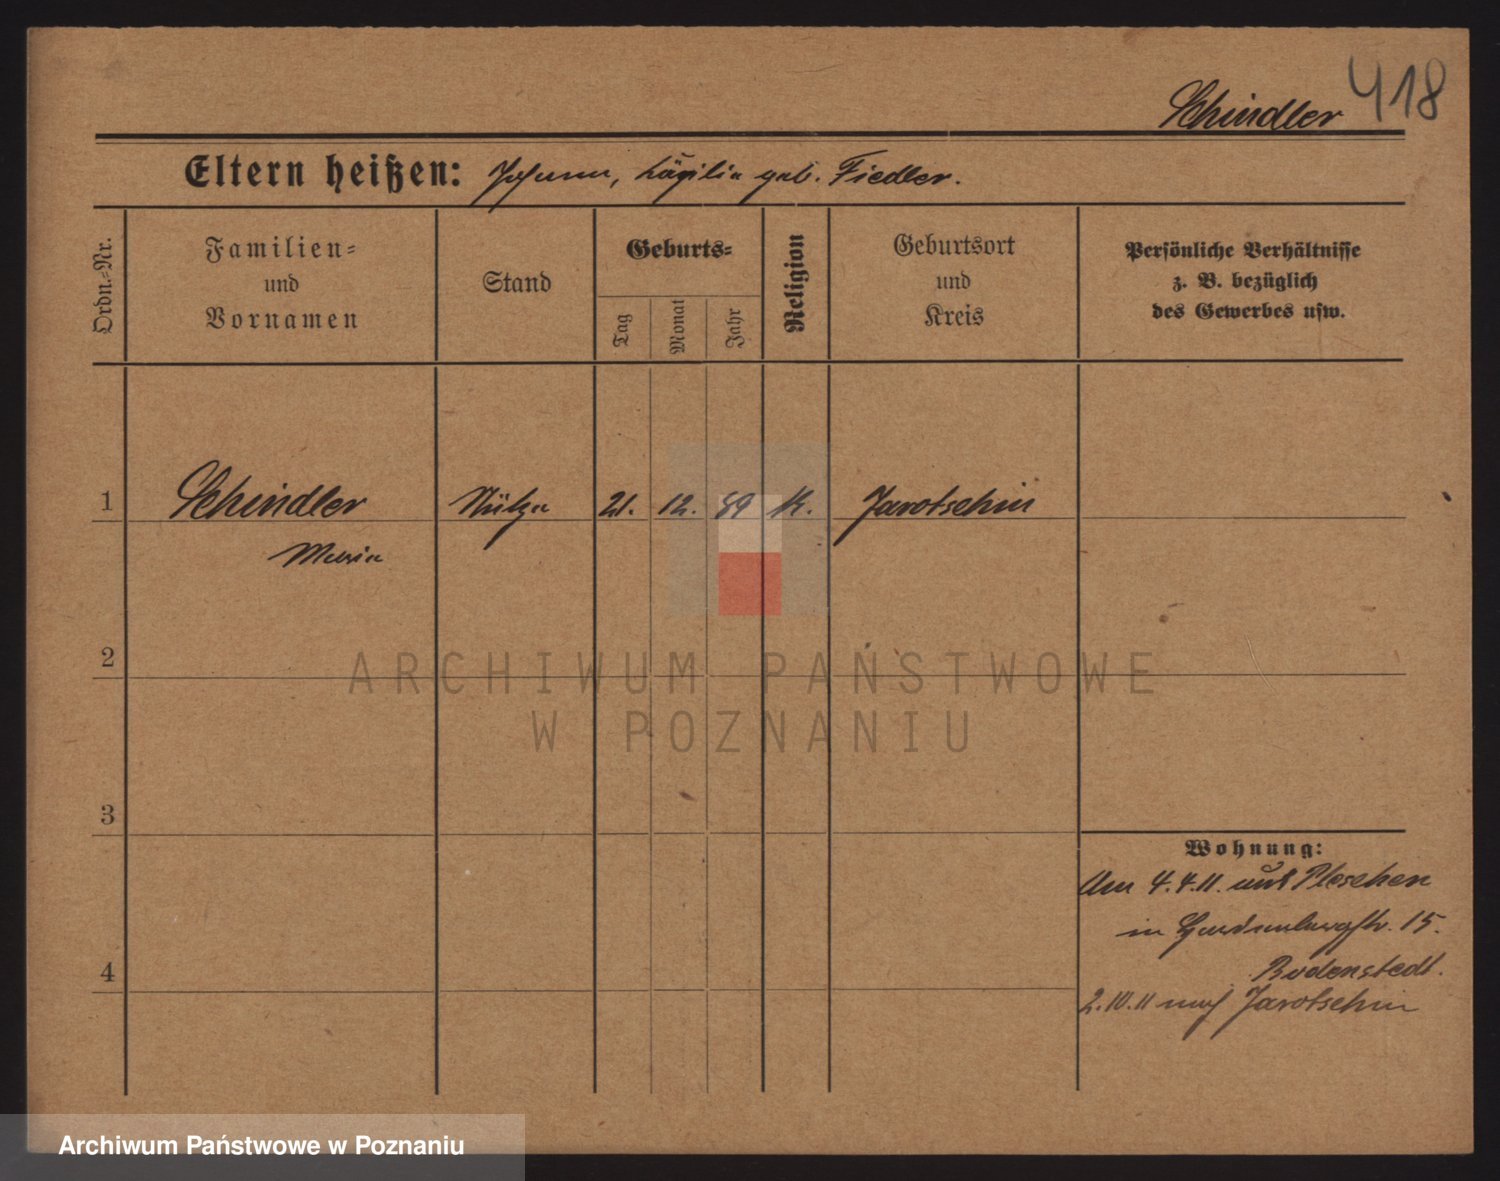 418
Schindler
Eltern heißen: Johann, Cäcilie geb. Fiedler.
Ordn.-Nr.
Familien-
und
Vornamen
Stand
Geburts-
Tag
Monat
Jahr
Religion
Geburtsort
und
Kreis
Persönliche Verhältnisse
z. B. bezüglich
des Gewerbes usw.
1 Schindler Stütze 21. 12. 89 K. Jarotschin
Maria
2
3
4
Wohnung:
Am 4.4.11. aus Pleschen
in 15.
Bodenstedt.
2.10.11 nach Jarotschin
ARCHIWUM PAŃSTWOWE
W POZNANIU
Archiwum Państwowe w Poznaniu